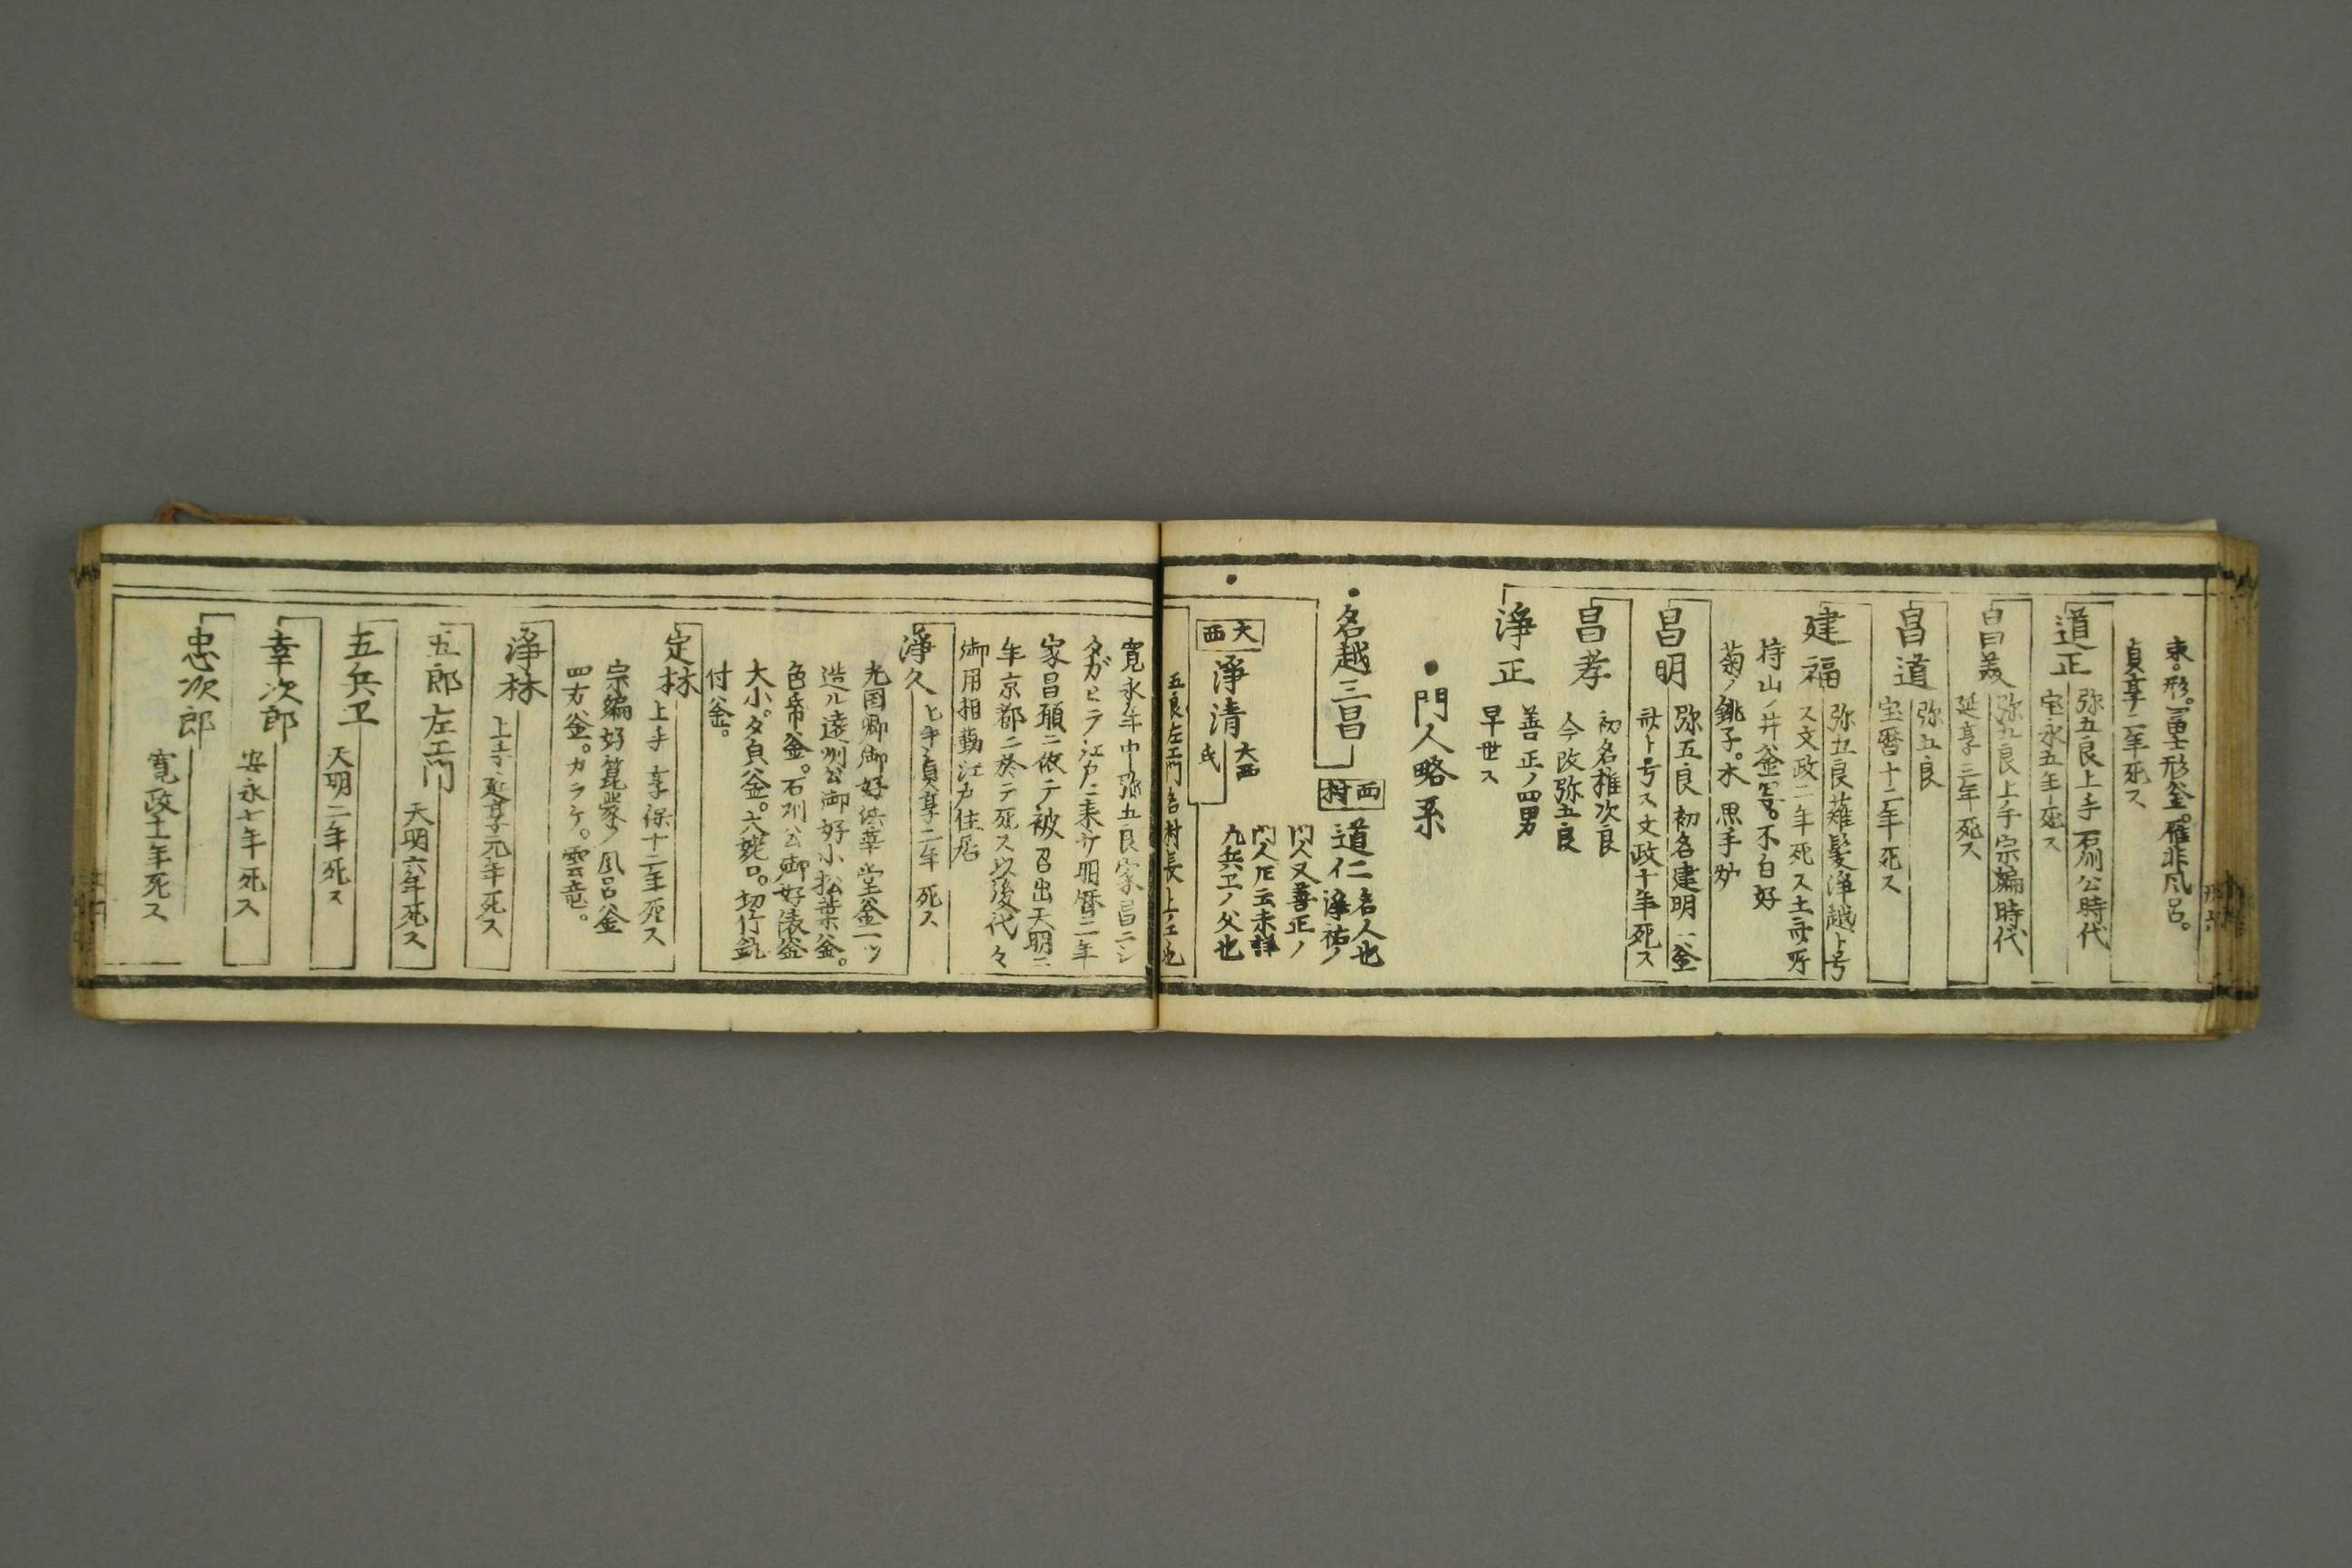 貞享二年死ス
道正
弥五良上手石州公時代
宝永五年死ス
昌美
弥五良上手宗編時代
延享三年死ス
昌道
弥五良
宝暦十二年死ス
建福
弥五良薙髪浄越ト号
ス文政二年死ス土斎所
持山ノ井釜写。不白好
菊ノ銚子。水
昌明
弥五良初名建明
ト号ス文政十年死ス
昌孝
初名雅次良
今改弥五良
浄正
善正ノ四男
早世ス
●門人略系
●名越三昌
西村
道仁
名人也
浄祐ノ
門人又善正ノ
門人圧云未詳
九兵ヱノ父也
●
大西
浄清
大西
氏
五良左ヱ門ト西村長上手也
寛永年中弥五良家昌ニシ
タガヒテ江戸ニ来ル明暦二年
家昌願ニ依テ被召出天明二
年京都ニ於テ死ス以後代々
御用相勤江戸住居
浄久
上手貞享二年死ス
光国卿御好法華堂釜一ツ
造ル遠州公御好小松葉釜。
色帋釜。石州公御好俵釜
大小。夕貝釜。六姥口。切竹釻
付釜。
定林
上手享保十二年死ス
宗編好箆蒙ノ風呂釜
四方釜。カラケ。雲竜。
浄林
上手延享元年死ス
五郎左ヱ門
天明六年死ス
五兵ヱ
天明二年死ス
幸次郎
安永七年死ス
忠次郎
寛政十一年死ス